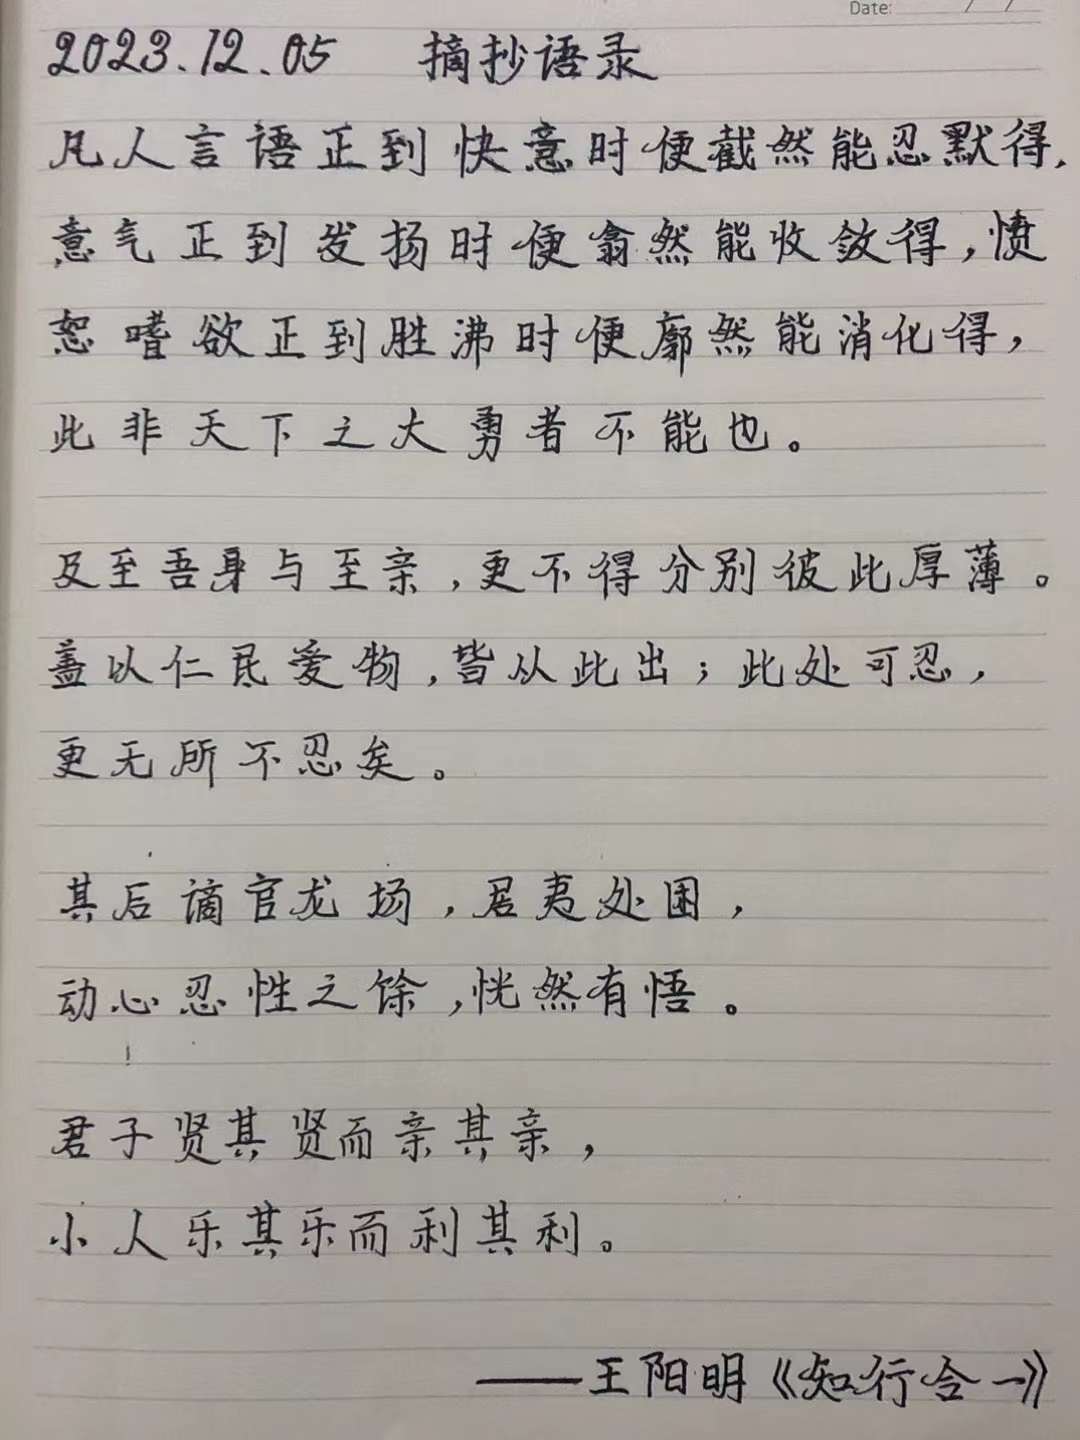 Date: / /
2023.12.05 摘抄语录
凡人言语正到快意时便截然能忍默得,
意气正到发扬时便翕然能收敛得,愤
恕嗜欲正到胜沸时便廓然能消化得,
此非天下之大勇者不能也。
及至吾身与至亲,更不得分别彼此厚薄。
盖以仁民爱物,皆从此出;此处可忍,
更无所不忍矣。
其后谪官龙场,居夷处困,
动心忍性之馀,恍然有悟。
君子贤其贤而亲其亲,
小人乐其乐而利其利。
——王阳明《知行合一》